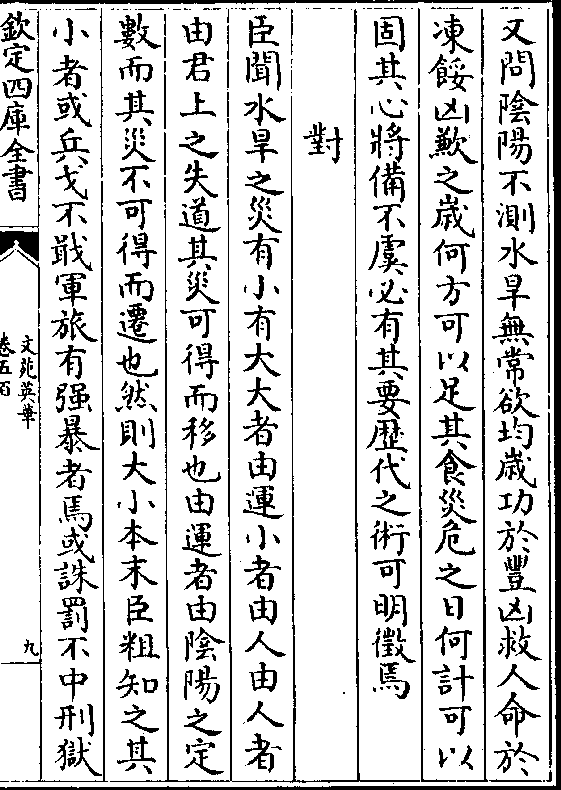 又問陰陽不測水旱無常欲均歳功於豐凶救人命於
凍餒凶歉之歳何方可以足其食災危之日何計可以
固其心將備不虞必有其要歷代之術可明徵焉
對
臣聞水旱之災有小有大大者由運小者由人由人者
由君上之失道其災可得而移也由運者由陰陽之定
數而其災不可得而遷也然則大小本末臣粗知之其
小者或兵戈不戢軍旅有强暴者焉或誅罰不中刑獄
欽定四庫全書
文苑英華
卷五百
九